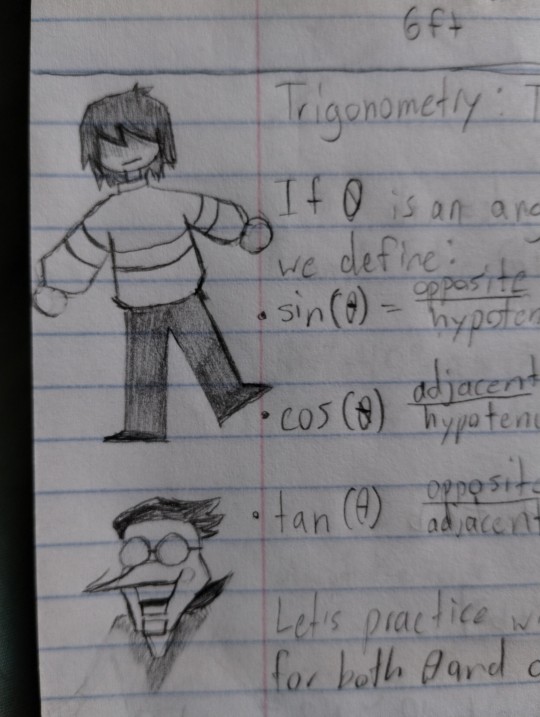 6ft
Trigonometry: T
If θ is an ang
we define:
• sin(θ) = opposite
hypoten
• cos(θ) adjacent
hypotenu
• tan(θ) opposite
adjacent
Let's practice w
for both θ and